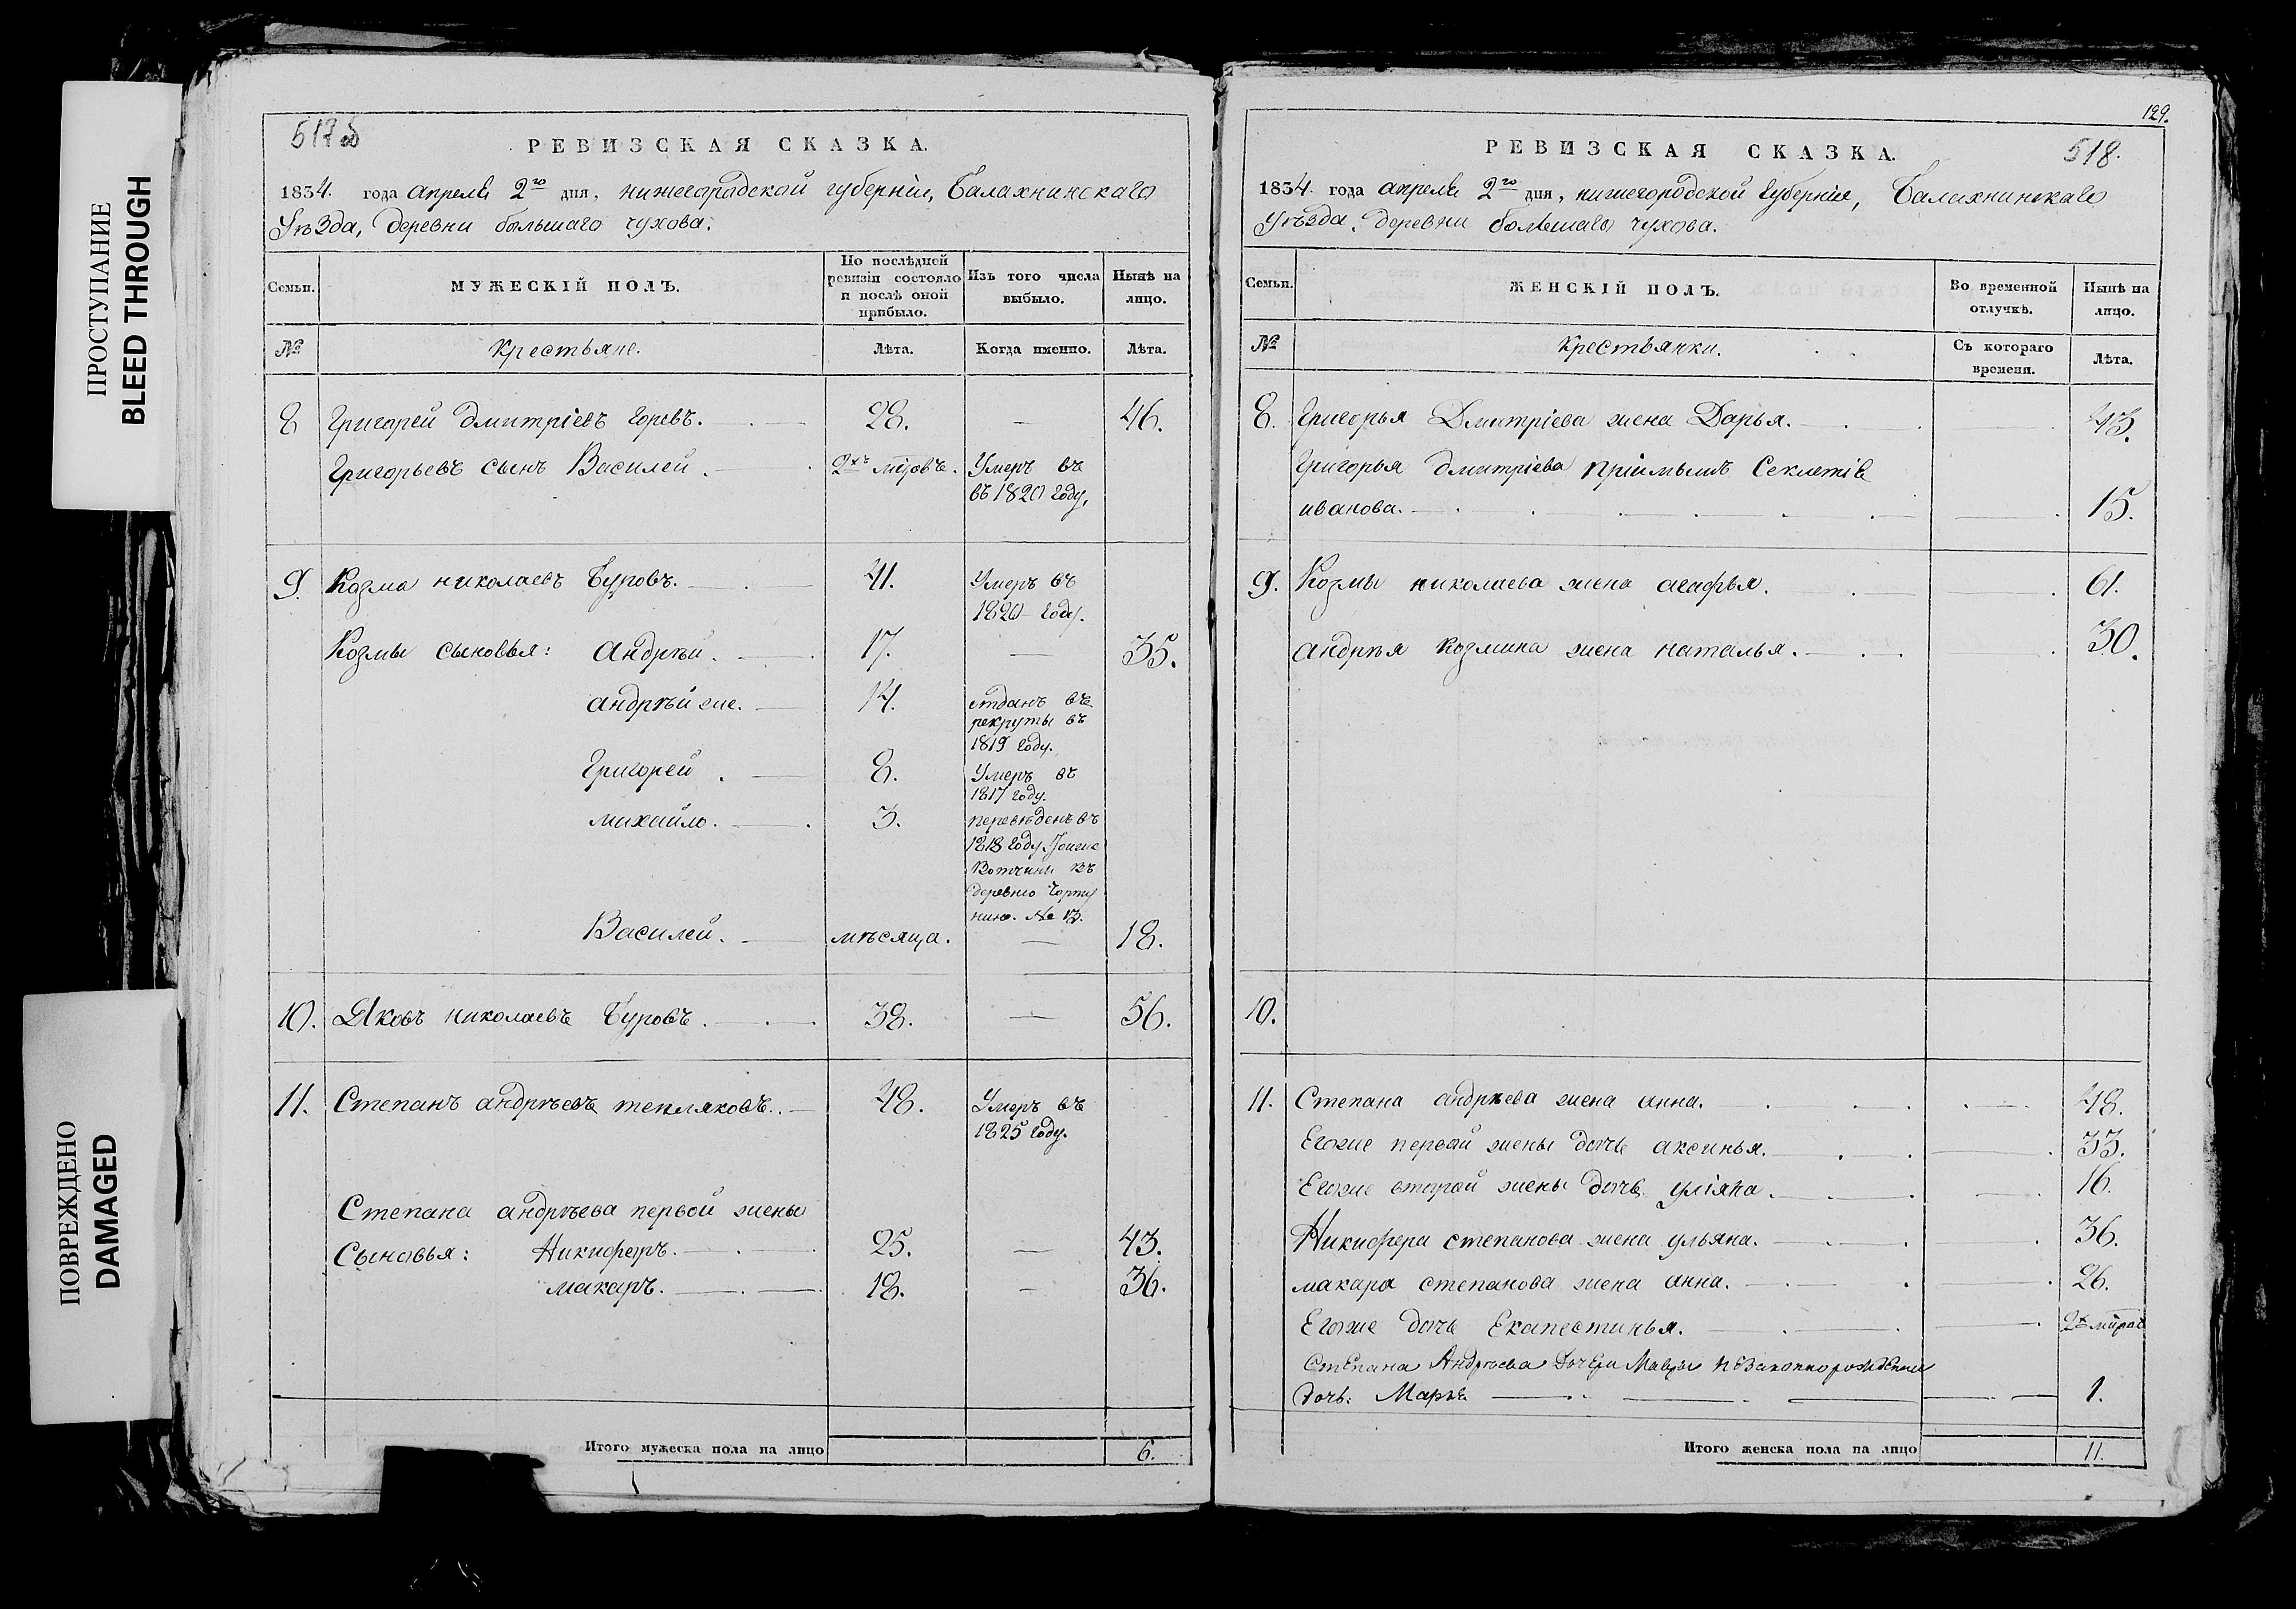 ПРОСТУПАНИЕ
BLEED THROUGH
ПОВРЕЖДЕНО
DAMAGED
517 об
РЕВИЗСКАЯ СКАЗКА.
1834. года апреля 2го дня, нижегородской губернiи, Балахнинскаго
Уѣзда, деревни большаго чухова.
Семьи.
МУЖЕСКIЙ ПОЛЪ.
По послѣдней ревизiи состояло и послѣ оной прибыло.
Изъ того числа выбыло.
Нынѣ на лицо.
№
Крестьяне.
Лѣта.
Когда именно.
Лѣта.
8 Григорей дмитрiевъ горевъ. 28. — 46.
Григорьевъ сынъ Василей. 2хъ мцовъ. Умеръ въ
въ 1820 году.
9. Козма николаевъ Буровъ. 41. Умеръ въ
1820 году.
Козмы сыновья: Андрѣй. 17. — 35.
андрѣй же. 14. отданъ въ
рекруты въ
1819 году.
Григорей 8. Умеръ въ
1817 году.
михайло. 3. переведенъ въ
1818 году
Вотчины въ
деревню
№ 13.
Василей. мѣсяца. — 18.
10. Яковъ николаевъ Буровъ. 38. — 56.
11. Степанъ андрѣевъ тепляковъ. 48. Умеръ въ
1825 году.
Степана андрѣева первой жены
Сыновья: Никифоръ. 25. — 43.
макаръ. 18. — 36.
Итого мужеска пола на лицо 6.
129.
518.
РЕВИЗСКАЯ СКАЗКА.
1834. года апреля 2го дня, нижегородской губернiи, Балахнинскаго
Уѣзда, деревни большаго чухова.
Семьи.
ЖЕНСКIЙ ПОЛЪ.
Во временной отлучкѣ.
Нынѣ на лицо.
№
Крестьянки.
Съ котораго времени.
Лѣта.
8. Григорья Дмитрiева жена Дарья. 43.
Григорья дмитрiева прiимышъ Секлетiя
иванова. 15.
9. Козмы николаева жена агафья. 61.
андрѣя козмина жена наталья. 30.
10.
11. Степана андрѣева жена анна. 48.
Егоже первой жены дочь аксинья. 33.
Егоже второй жены дочь улiяна. 16.
Никифора степанова жена ульяна. 36.
макара степанова жена анна. 26.
Егоже дочь Екапестинья. 2х мцовъ
Степана Андрѣева дочери Мавры незаконнорожденная
дочь: Марья 1.
Итого женска пола на лицо 11.